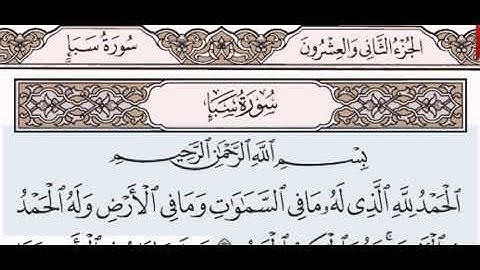 الجُزْءُ الثَّانِي وَالْعِشْرُونَ
سُورَةُ سَبَإٍ
سُورَةُ سَبَإٍ
بِسْمِ ٱللَّهِ ٱلرَّحْمَٰنِ ٱلرَّحِيمِ
ٱلْحَمْدُ لِلَّهِ ٱلَّذِى لَهُۥ مَا فِى ٱلسَّمَٰوَٰتِ وَمَا فِى ٱلْأَرْضِ وَلَهُ ٱلْحَمْدُ